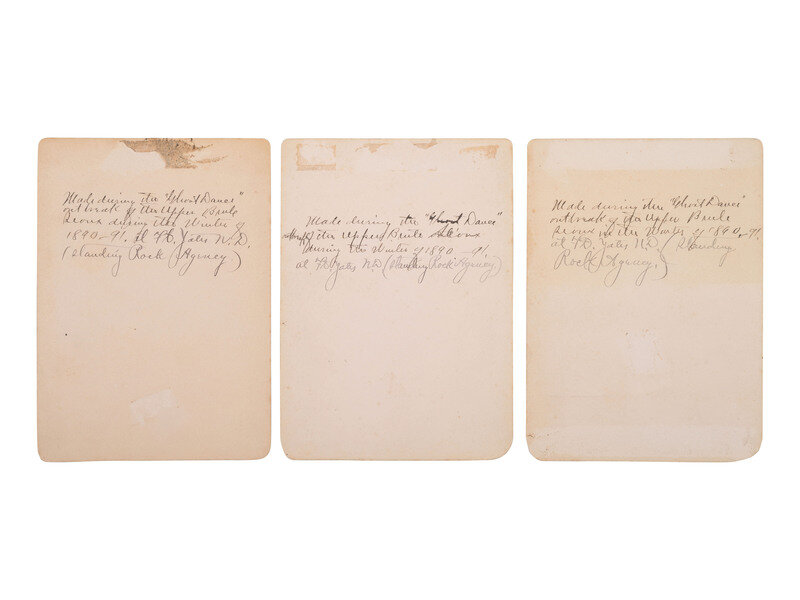 Made during the "Ghost Dance"
outbreak of the Upper Brule
Sioux during the Winter of
1890-91. at Ft. Yates N.D.
(Standing Rock Agency)
Made during the "Ghost Dance"
of the Upper Brule Sioux
during the Winter of 1890-91.
at Ft. Yates N.D (Standing Rock Agency)
Made during the "Ghost Dance"
outbreak of the Upper Brule
Sioux in the Winter of 1890-91
at Ft. Yates N.D. (Standing
Rock Agency.)